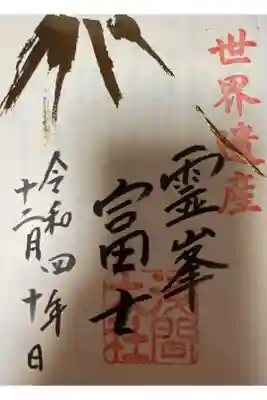 世界遺産
霊峯
富士
浅間
大社
令和四年
十二月十日